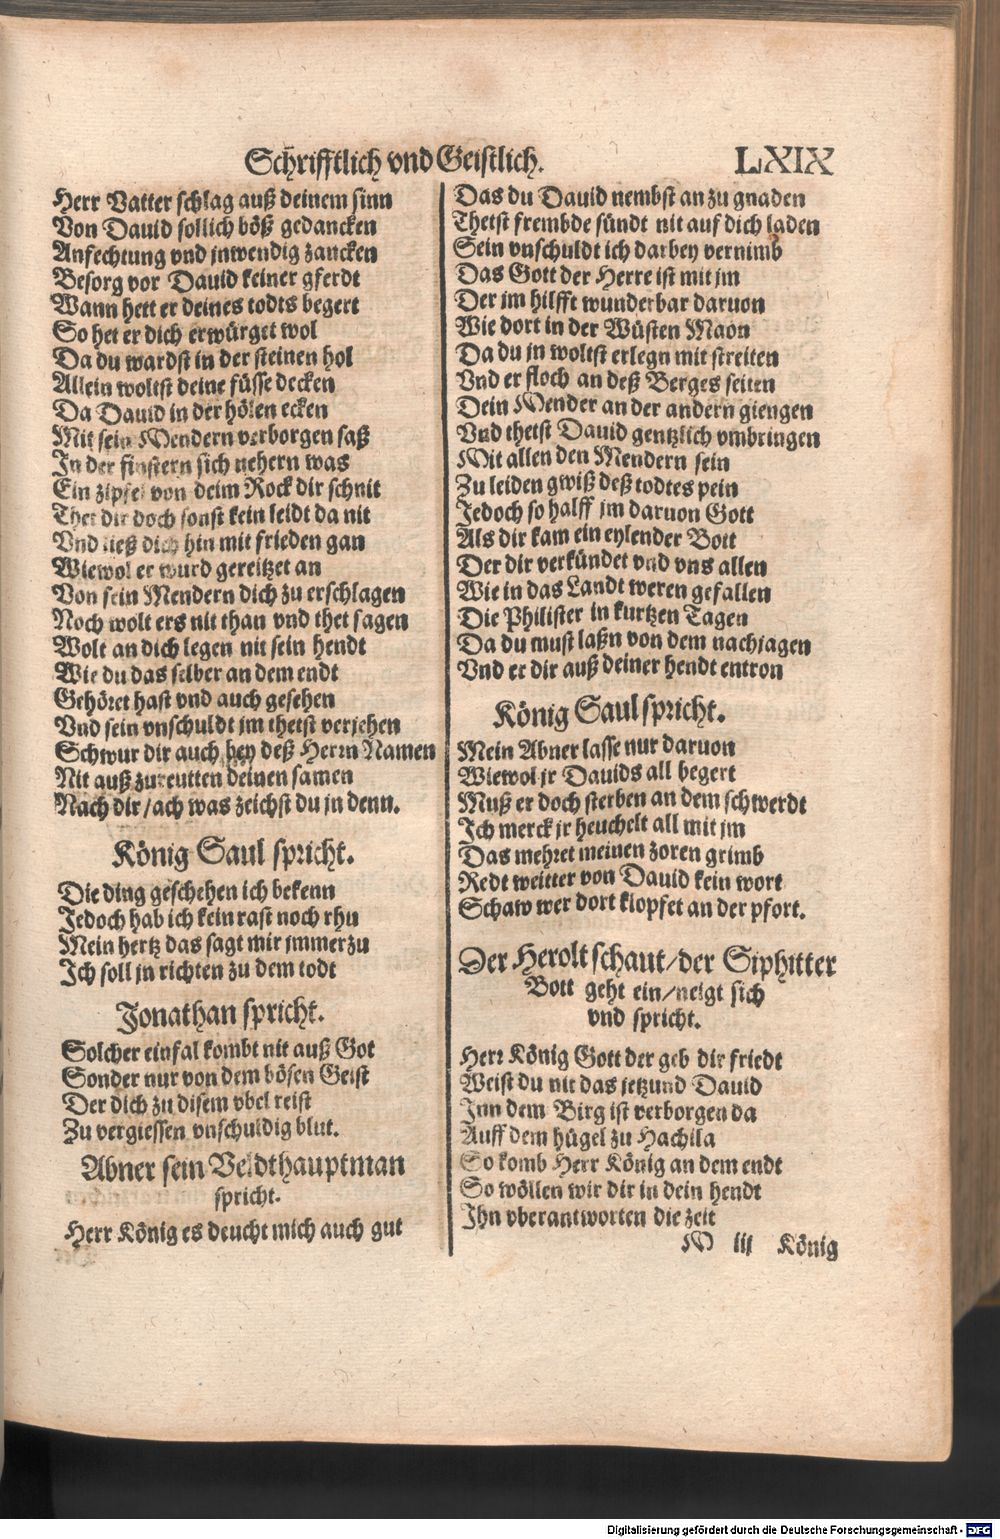 Schrifftlich vnd Geistlich.
LXIX
Herr Vatter schlag auß deinem sinn
Von Dauid sollich böß gedancken
Anfechtung vnd jnwendig zancken
Besorg vor Dauid keiner gferdt
Wann hett er deines todts begert
So het er dich erwürget wol
Da du wardst in der steinen hol
Allein woltst deine füsse decken
Da Dauid in der hölen ecken
Mit sein Mendern verborgen saß
In der finstern sich nehern was
Ein zipfel von deim Rock dir schnit
Thet dir doch sonst kein leidt da nit
Vnd ließ dich hin mit frieden gan
Wiewol er wurd gereitzet an
Von sein Mendern dich zu erschlagen
Noch wolt ers nit than vnd thet sagen
Wolt an dich legen nit sein hendt
Wie du das selber an dem endt
Gehöret hast vnd auch gesehen
Vnd sein vnschuldt jm thetst verjehen
Schwur dir auch bey deß Herrn Namen
Nit auß zureutten deinen samen
Nach dir/ach was zeichst du jn denn.
König Saul spricht.
Die ding geschehen ich bekenn
Jedoch hab ich kein rast noch rhu
Mein hertz das sagt mir jmmerzu
Ich soll jn richten zu dem todt
Jonathan spricht.
Solcher einfal kombt nit auß Got
Sonder nur von dem bösen Geist
Der dich zu disem vbel reist
Zu vergiessen vnschuldig blut.
Abner sein Veldthauptman
spricht.
Herr König es deucht mich auch gut
Das du Dauid nembst an zu gnaden
Thetst frembde sündt nit auf dich laden
Sein vnschuldt ich darbey vernimb
Das Gott der Herre ist mit jm
Der jm hilfft wunderbar daruon
Wie dort in der Wüsten Maon
Da du jn woltst erlegn mit streiten
Vnd er floch an deß Berges seiten
Dein Mender an der andern giengen
Vnd thetst Dauid gentzlich vmbringen
Mit allen den Mendern sein
Zu leiden gwiß deß todtes pein
Jedoch so halff jm daruon Gott
Als dir kam ein eylender Bott
Der dir verkündet vnd vns allen
Wie in das Landt weren gefallen
Die Philister in kurtzen Tagen
Da du must laßn von dem nachjagen
Vnd er dir auß deiner hendt entron
König Saul spricht.
Mein Abner lasse nur daruon
Wiewol jr Dauids all begert
Muß er doch sterben an dem schwerdt
Ich merck jr heuchelt all mit jm
Das mehret meinen zoren grimb
Redt weitter von Dauid kein wort
Schaw wer dort klopfet an der pfort.
Der Herolt schaut/der Siphitter
Bott geht ein/neigt sich
vnd spricht.
Herr König Gott der geb dir friedt
Weist du nit das jetzund Dauid
Inn dem Birg ist verborgen da
Auff dem hügel zu Hachila
So komb Herr König an dem endt
So wöllen wir dir in dein hendt
Ihn vberantworten die zeit
M iij König
Digitalisierung gefördert durch die Deutsche Forschungsgemeinschaft - DFG